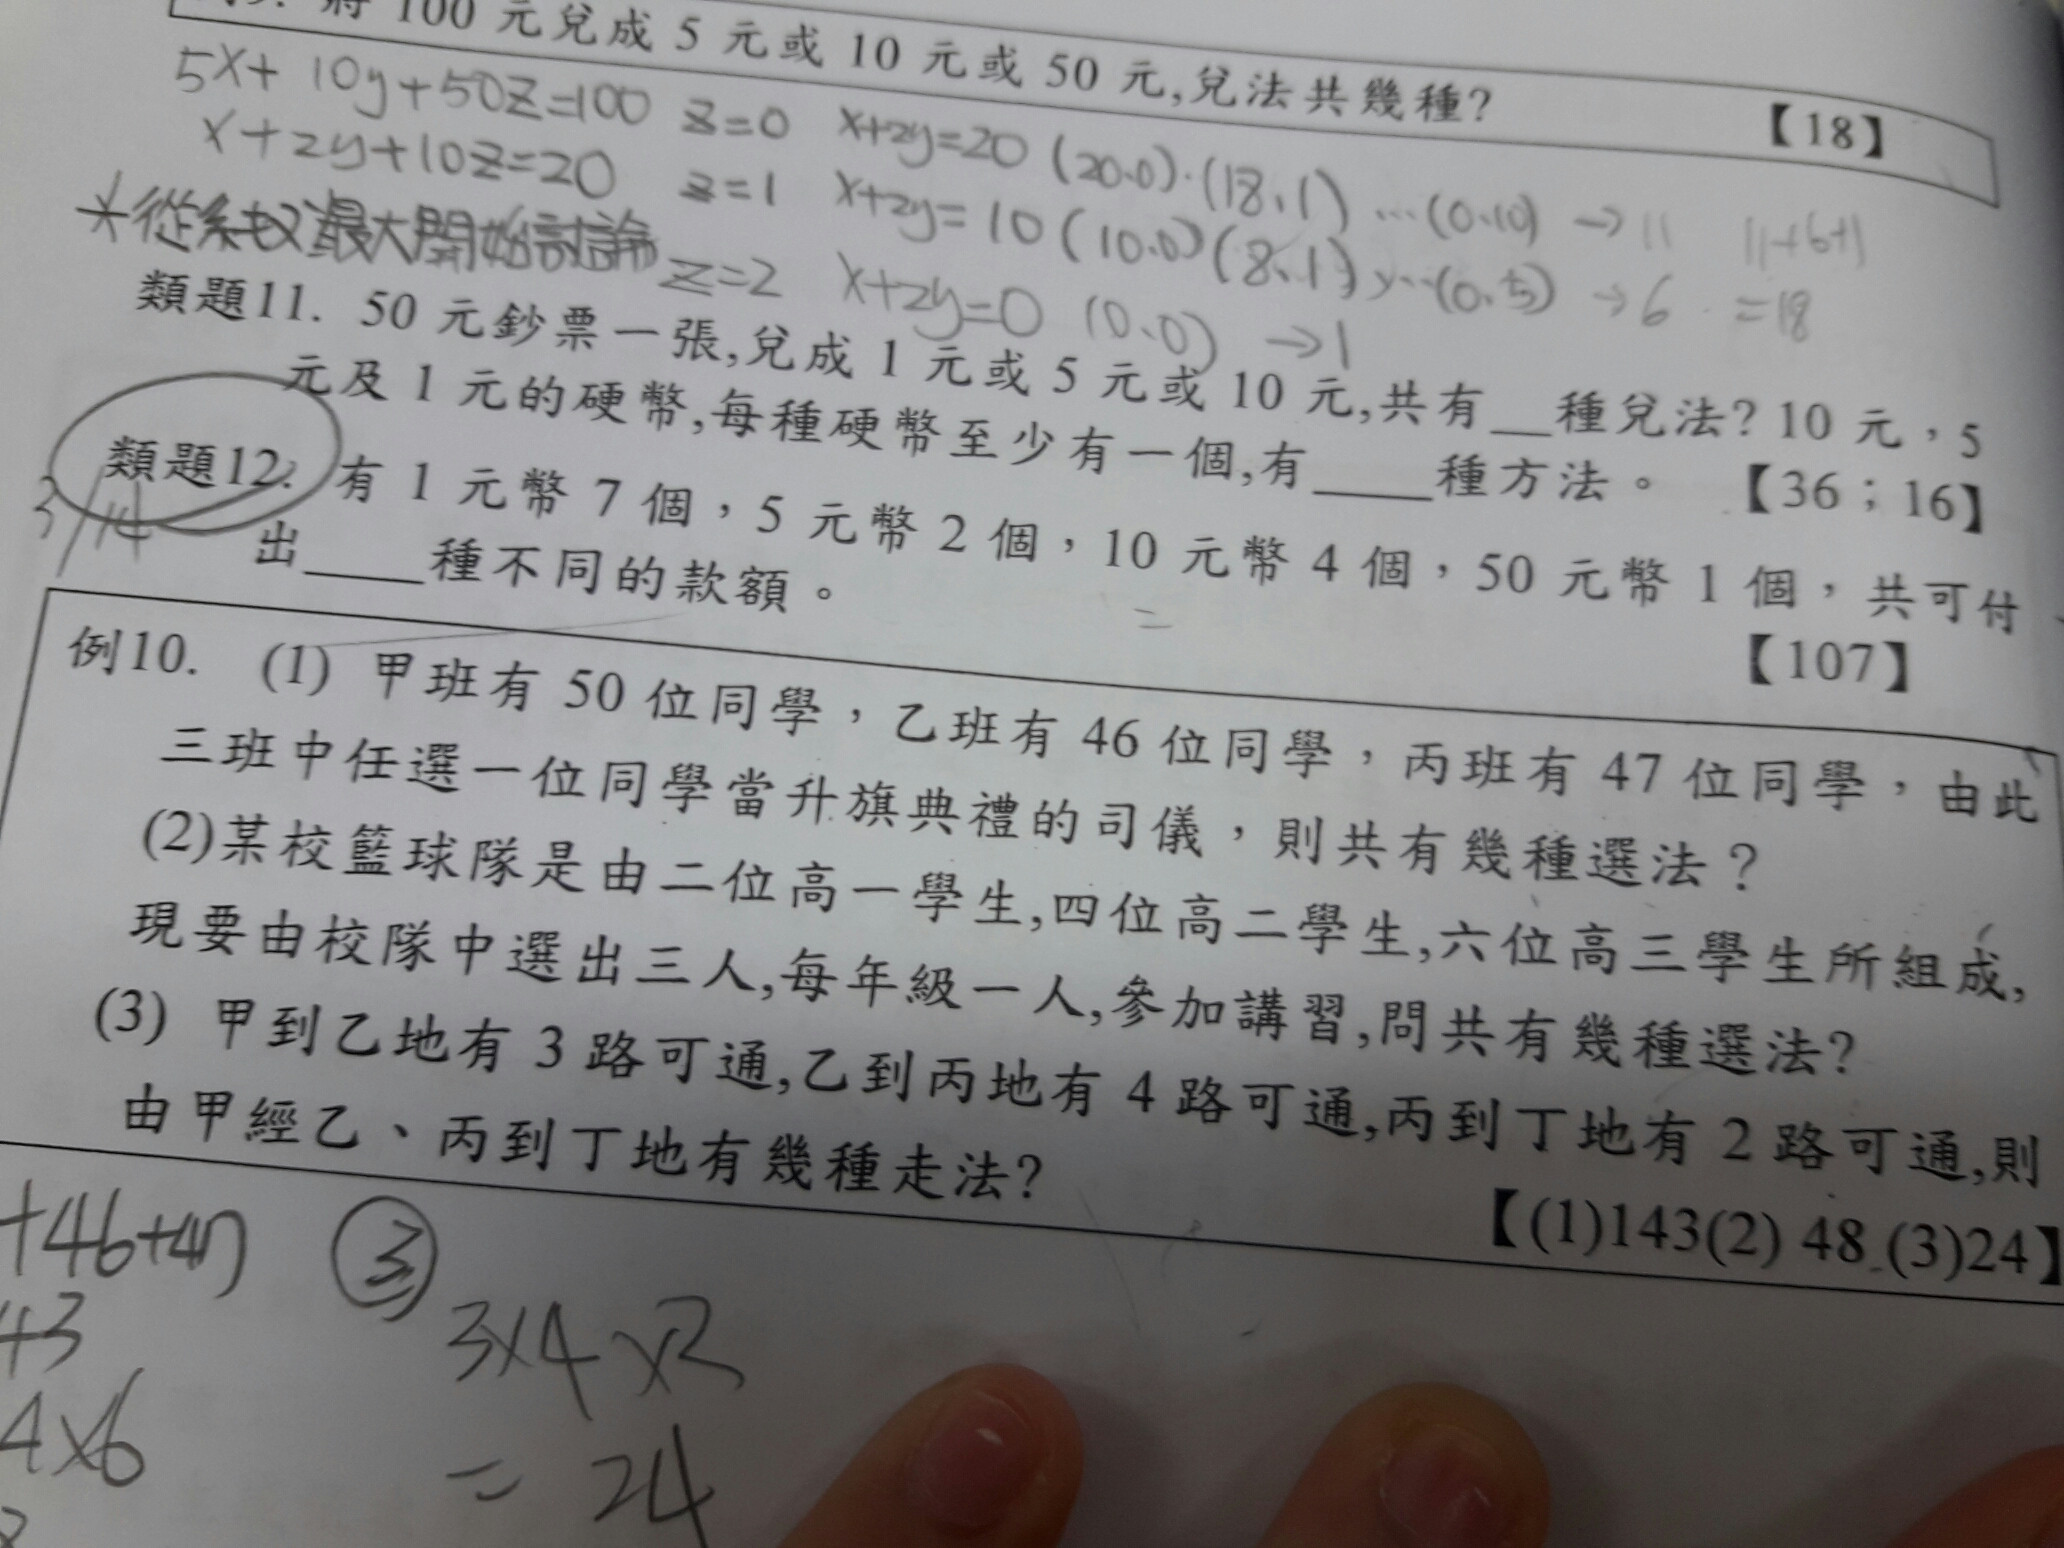 將 100 元兌成 5 元或 10 元或 50 元,兌法共幾種? 【18】
5x+10y+50z=100 z=0 x+2y=20 (20.0).(18.1)...(0.10) → 11 11+6+1
x+2y+10z=20 z=1 x+2y=10 (10.0)(8.1)...(0.5) → 6 =18
*從係數最大開始討論 z=2 x+2y=0 (0.0) → 1
類題11. 50 元鈔票一張,兌成 1 元或 5 元或 10 元,共有__種兌法? 10 元,5
元及 1 元的硬幣,每種硬幣至少有一個,有____種方法。 【36;16】
類題12. 有 1 元幣 7 個,5 元幣 2 個,10 元幣 4 個,50 元幣 1 個,共可付
3/14 出____種不同的款額。 【107】
例10. (1) 甲班有 50 位同學,乙班有 46 位同學,丙班有 47 位同學,由此
三班中任選一位同學當升旗典禮的司儀,則共有幾種選法?
(2)某校籃球隊是由二位高一學生,四位高二學生,六位高三學生所組成,
現要由校隊中選出三人,每年級一人,參加講習,問共有幾種選法?
(3) 甲到乙地有 3 路可通,乙到丙地有 4 路可通,丙到丁地有 2 路可通,則
由甲經乙、丙到丁地有幾種走法? 【(1)143(2) 48 (3)24】
+46+47 ③
43 3×4×2
4×6 = 24